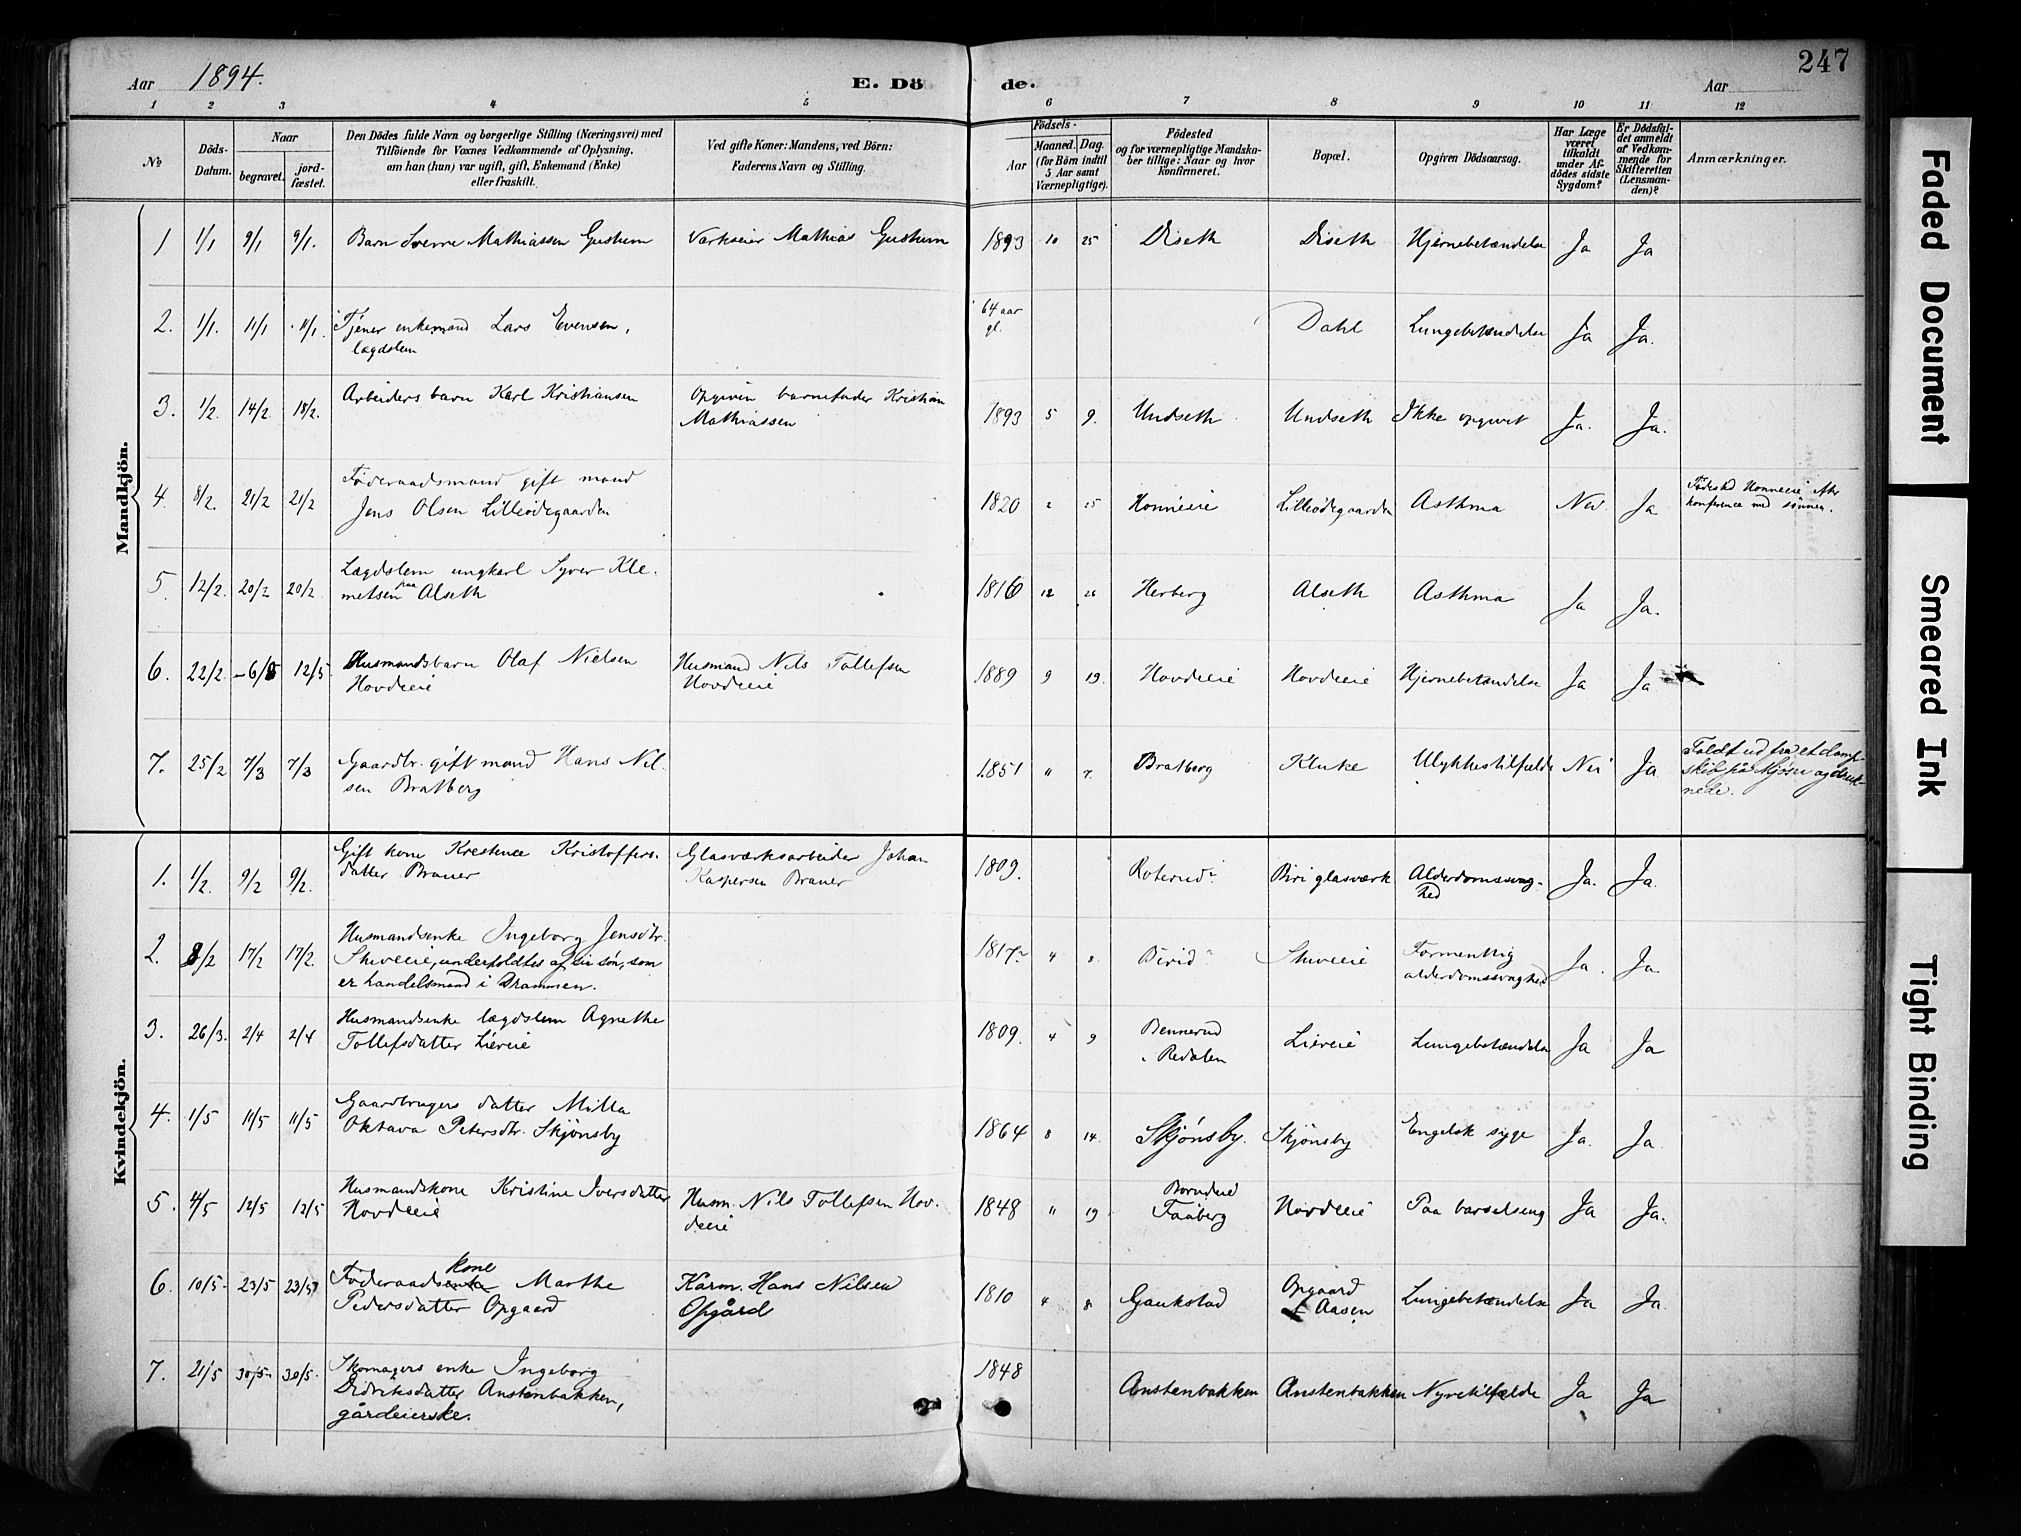 Aar 1894. E. Döde. Aar 247
1 2 3 4 5 6 7 8 9 10 11 12
No
Döds-Datum.
Naar
begravet.
jordfæstet.
Den Dödes fulde Navn og borgerlige Stilling (Næringsvei) med
Tilföiende for Voxnes Vedkommende af Oplysning,
om han (hun) var ugift, gift, Enkemand (Enke)
eller fraskilt.
Ved gifte Koner: Mandens, ved Börn:
Faderens Navn og Stilling.
Födsels-
Aar
Maaned. Dag.
(for Börn indtil
5 Aar samt
Værnepligtige).
Födested
og for værnepligtige Mandska-
ber tillige: Naar og hvor
konfirmeret.
Bopæl.
Opgiven Dödsaarsag.
Har Læge
været
tilkaldt
under Af-
dödes sidste
Sygdom?
Er Dödsfal-
det anmeldt
af Vedkom-
mende for
Skifteretten
(Lensman-
den)?
Anmærkninger.
Mandkjön.
1 1/1 9/1 9/1. Barn Sverre Mathiassen Gushum Værkseier Mathias Gushum 1893 10 25 Diseth Diseth Hjernebetændelse Ja Ja
2. 1/1. 11/1 11/1. Tjener enkemand Lars Evensen, 64 aar gl. Dahl Lungebetændelse Ja Ja.
lægdslem
3. 1/2. 14/2 18/2. Arbeiders barn Karl Kristiansen Opgiven barnefader Kristian 1893 5 9. Undseth Undseth Ikke opgivet Ja. Ja.
Mathiassen
4. 8/2. 21/2 21/2 Föderaadsmand gift mand
Jens Olsen Lilleödegaarden 1820 2 25 Honneie Lilleödegaarden Asthma Nei. Ja Födested Honneeie efter
konference med sönnen.
5. 12/2. 20/2 20/2 Lægdslem ungkarl Syver Kle-
metsen paa Alseth 1816 12 26 Herberg Alseth Asthma Ja Ja.
6. 22/2. 6/5 12/5. Husmandsbarn Olaf Nielsen Husmand Nils Tollefsen 1889 9 19. Hovdeeie Hovdeeie Hjernebetændelse Ja Ja
Hovdeeie Hovdeeie
7. 25/2 7/3 7/3 Gaardbr. gift mand Hans Nil- 1851 " 7. Bratberg Kluke Ulykkestilfælde Nei Ja Faldt ud fra et damp-
sen Bratberg skib på Mjøsen og druk-
nede.
Kvindekjön.
1. 1/2. 9/2 9/2. Gift kone Krestence Kristoffers- Glasværksarbeider Johan 1809. Roterud Biri glasværk Alderdomssvag- Ja. Ja.
datter Brauer Kaspersen Brauer hed
2. 8/2 17/2 17/2. Husmandsenke Ingeborg Jensdtr. 1817 4 Birid Skveeie Formentlig Ja. Ja.
Skveeie, underholdtes af sin søn, som alderdomssvaghed
er handelsmand i Drammen.
3. 26/3. 2/4 2/4 Husmandsenke lægdslem Agnethe 1809. 4 9 Bennerud Liereie Lungebetændelse Ja Ja
Tollefsdatter Liereie i Redalen
4. 1/5 11/5 11/5 Gaardbrugers datter Milla
Oktava Petersdtr. Skjönsby 1864 8 14. Skjønsby. Skjönsby Engelsk syge Ja. Ja.
5. 4/5 12/5 12/5 Husmandskone Kristine Iversdatter Husm. Nils Tollefsen Hov- 1848 " 19 Faaberg Hovdeeie Paa barselseng Ja Ja.
Hovdeeie deeie
6. 10/5 23/5 23/5 Föderaadsenke kone Marthe Kårm. Hans Nilsen 1810 4 8 Gaukstad Opgaard Lungebetændelse Ja Ja.
Pedersdatter Opgaard Opgård Aasen
7. 21/5 30/5 30/5. Skomagers enke Ingeborg 1848
Didriksdatter Anstenbakken, Anstenbakken Anstenbakken Nyretilfælde Ja Ja
gårdeierske.
Faded Document
Smeared Ink
Tight Binding